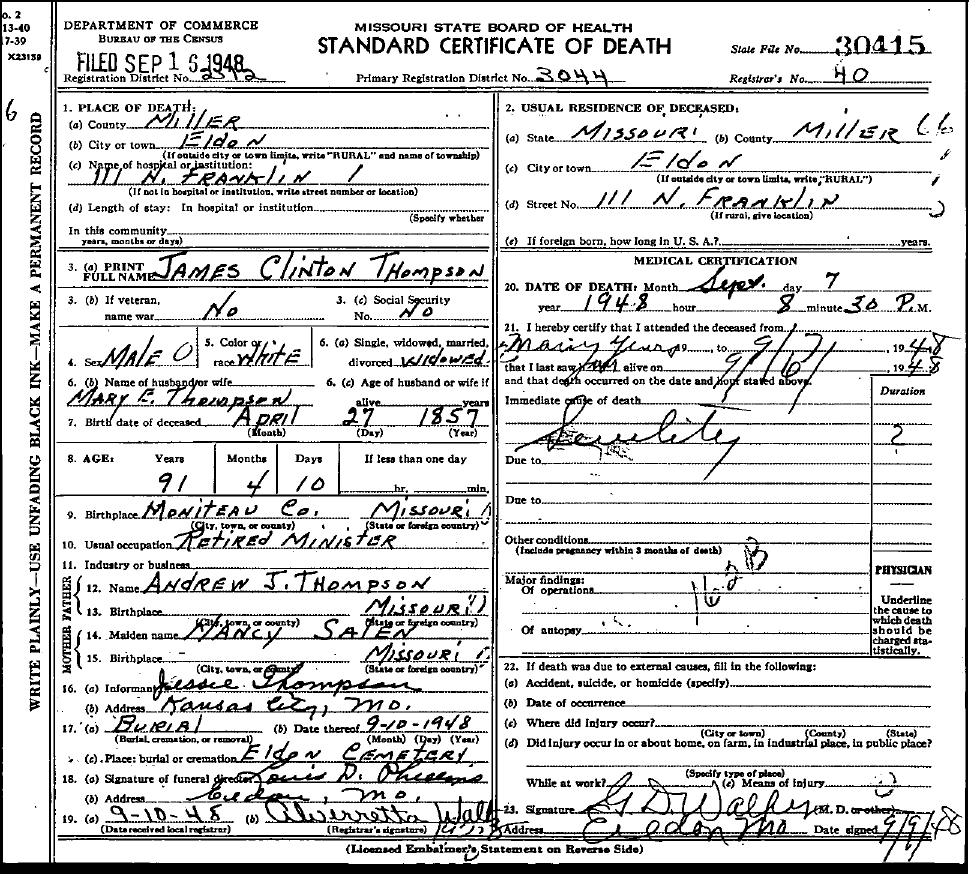 o. 2
13-40
7-39
X23159
6
WRITE PLAINLY—USE UNFADING BLACK INK—MAKE A PERMANENT RECORD
DEPARTMENT OF COMMERCE
BUREAU OF THE CENSUS
MISSOURI STATE BOARD OF HEALTH
STANDARD CERTIFICATE OF DEATH
State File No. 30415
FILED SEP 16 1948
Registration District No.
Primary Registration District No. 3044
Registrar's No. 40
1. PLACE OF DEATH:
(a) County MILLER
(b) City or town ELDON
(If outside city or town limits, write "RURAL" and name of township)
(c) Name of hospital or institution:
111 N. FRANKLIN 1
(If not in hospital or institution, write street number or location)
(d) Length of stay: In hospital or institution
(Specify whether
In this community
years, months or days)
2. USUAL RESIDENCE OF DECEASED:
(a) State MISSOURI (b) County MILLER 66
(c) City or town ELDON
(If outside city or town limits, write "RURAL")
(d) Street No. 111 N. FRANKLIN
(If rural, give location)
(e) If foreign born, how long in U. S. A.? years.
3. (a) PRINT FULL NAME JAMES CLINTON THOMPSON
3. (b) If veteran, name war No
3. (c) Social Security No. NO
4. Sex MALE O
5. Color or race WHITE
6. (a) Single, widowed, married, divorced WIDOWED
6. (b) Name of husband/or wife
MARY E. THOMPSON
6. (c) Age of husband or wife if alive years
7. Birth date of deceased APRIL 27 1857
(Month) (Day) (Year)
8. AGE: Years Months Days If less than one day
91 4 10 hr. min.
9. Birthplace MONITEAU CO. MISSOURI
(City, town, or county) (State or foreign country)
10. Usual occupation RETIRED MINISTER
11. Industry or business
FATHER
12. Name ANDREW J. THOMPSON
13. Birthplace MISSOURI
(City, town, or county) (State or foreign country)
MOTHER
14. Maiden name NANCY SALEN
15. Birthplace MISSOURI
(City, town, or county) (State or foreign country)
16. (a) Informant Jessie Thompson
(b) Address Kansas City, Mo.
17. (a) BURIAL (b) Date thereof 9-10-1948
(Burial, cremation, or removal) (Month) (Day) (Year)
(c) Place: burial or cremation ELDON CEMETERY
18. (a) Signature of funeral director Louis D. Phillips
(b) Address Eldon, Mo.
19. (a) 9-10-48 (b) Alverretta Walt
(Date received local registrar) (Registrar's signature)
MEDICAL CERTIFICATION
20. DATE OF DEATH: Month Sept. day 7
year 1948 hour 8 minute 30 P.M.
21. I hereby certify that I attended the deceased from
Many Years 19 , to 9/7/ 1948
that I last saw him alive on 9/6/ 1948
and that death occurred on the date and hour stated above.
Duration
Immediate cause of death
Senility ?
Due to
Due to
Other conditions
(Include pregnancy within 3 months of death)
Major findings:
Of operations
162B
Of autopsy
PHYSICIAN
Underline
the cause to
which death
should be
charged sta-
tistically.
22. If death was due to external causes, fill in the following:
(a) Accident, suicide, or homicide (specify)
(b) Date of occurrence
(c) Where did injury occur?
(City or town) (County) (State)
(d) Did injury occur in or about home, on farm, in industrial place, in public place?
(Specify type of place)
While at work? (e) Means of injury
23. Signature G D Walker (M. D. or other)
Address Eldon Mo Date signed 9/9/48
(Licensed Embalmer's Statement on Reverse Side)